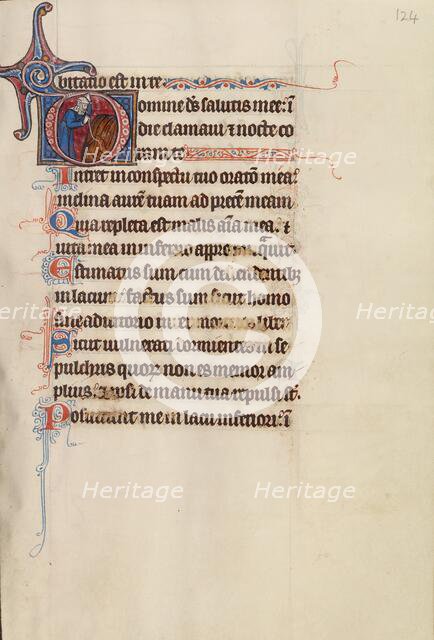 124
bitatio est in te
omine ds salutis mee: i
die clamaui ⁊ nocte co
ram te
Intret in conspectu tuo oratio mea:
inclina aurē tuam ad precem meam
Quia repleta est malis aīa mea: ⁊
uita mea in inferno appro
Estimatus sum cum descendentibꝫ
in lacum: factus sum sicut homo
sine adiutorio inter mortuos liber
Sicut uulnerati dormientes in se
pulchris quoꝝ non es memor am
plius: ⁊ ipsi de manu tua repulsi st̄.
Posuerunt me in lacu inferiori: ī
Heritage
Heritage
Heritage
Heritage
Heritage
Heritage
Heritage